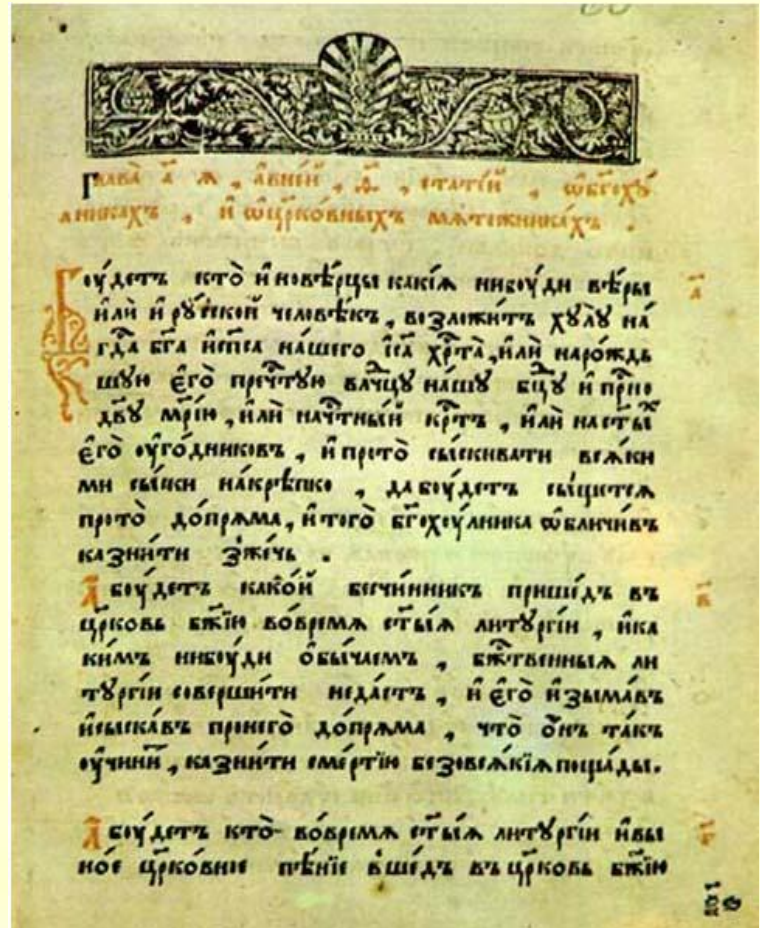 Глава̀ а҃ я , а҆вне́й , ѳ҃ , стате́й , ѡ҆бг҃охꙋ́
лникахъ , и҆ ѡ҆цр҃ко́вныхъ мѧте́жникахъ .
Боу́детъ кто̀ и҆новѣ́рцы какі́ѧ нибоу́ди вѣ́ры
и҆лѝ и҆ рꙋ́сской человѣ́къ , возложи́тъ хꙋлꙋ̀ на́
гдⷭ҇а бг҃а и҆сп҃са на́шего і҆с҃а хрⷭ҇та̀ , и҆лѝ наро́ждь
шꙋю є҆го̀ пречⷭ҇тꙋю влⷣчцꙋ на́шꙋ бцⷣꙋ и҆ при҃о
дв҃ꙋ мр҃і́ю , и҆лѝ начⷭ҇тны́й крⷭ҇тъ , и҆лѝ наст҃ы́хъ
є҆го̀ оу҆го́дниковъ , и҆ прото̀ сы́скивати всѧ́ки
ми сы́ски на́крѣпко , да боу́детъ сы́щетсѧ
прото̀ до́прѧма , и҆того̀ бг҃охоу́лника ѡ҆бличи́въ
казни́ти зже́чь .
А҆ боу́детъ како́й бесчи́нникъ прише́дъ въ
цр҃ковь бж҃ію во́времѧ ст҃ы́ѧ литꙋргі́и , и҆ка
ки́мъ нибоу́ди ѻ҆бы́чаемъ , бжⷭ҇твенныѧ ли
тꙋргі́и соверши́ти неда́стъ , и҆ є҆го̀ и҆зыма́въ
и҆сыска́въ пронего̀ до́прѧма , что̀ ѻ҆́нъ та́къ
оу҆чини́т , казни́ти сме́ртію безовсѧ́кіѧ поща́ды.
А҆ боу́детъ кто̀ во́времѧ ст҃ы́ѧ литꙋргі́и и҆вы
но́е цр҃ко́вное пѣ́ніе вше́дъ въ цр҃ковь бж҃ію
а҃
в҃
г҃